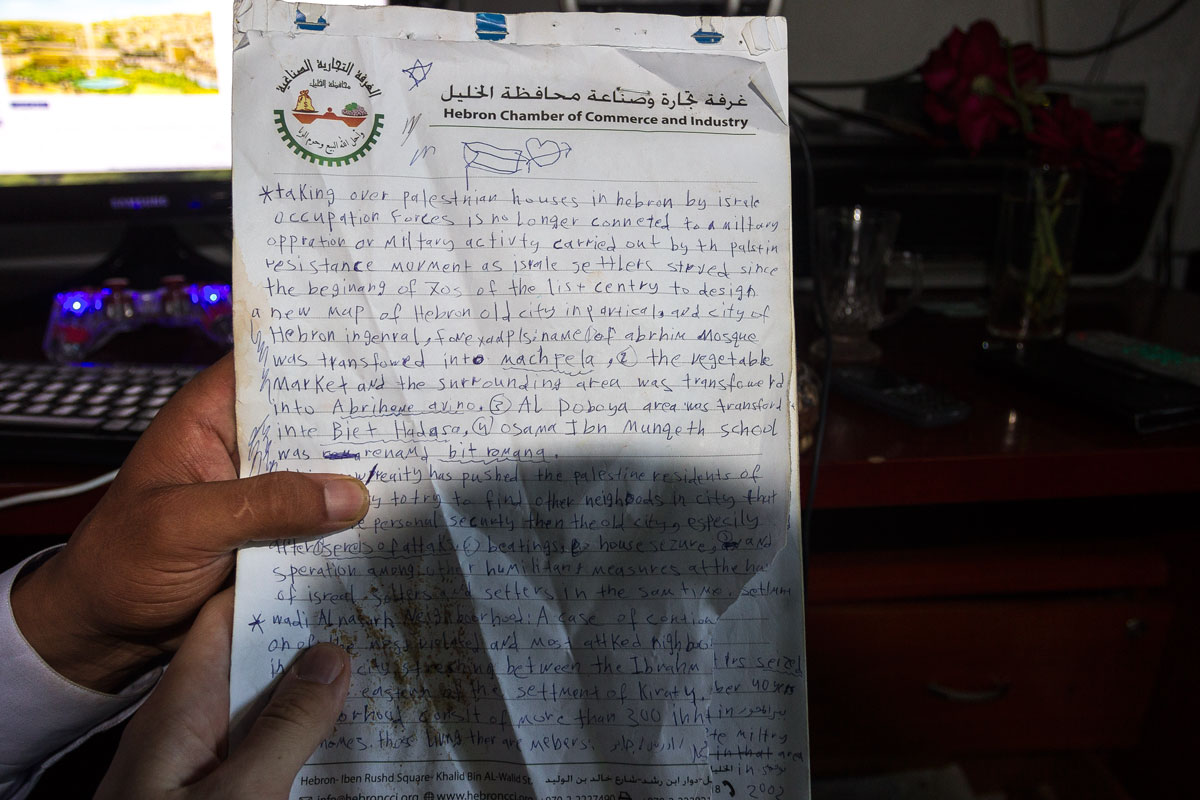 SAMSUNG
الغرفة التجارية الصناعية
محافظة الخليل
وأحل الله البيع وحرم الربا
غرفة تجارة وصناعة محافظة الخليل
Hebron Chamber of Commerce and Industry
* taking over palestnian houses in hebron by israle
occupation Forces is no longer conneted to a miltary
oppration or Miltary activty carried out by th palstin
resistance movment as israle settlers strved since
the beginang of 70s of the list centry to design
a new map of Hebron old city inparticals and city of
Hebron ingenral, forexadpls: name of abrhim Mosque
was transfowed into machpela, 2) the vegetable
Market and the surrounding area was transfowerd
into Abrihame avino. 3) AL Doboya area was transford
inte Biet Hadasa, (4) osama Ibn Munqeth school
was renamd bit romana.
reaity has pushed the palestine residents of
to try to find other neighboods in citsy that
personal security then the old city, especily
after 1) serels of attaks 2) beatings, house sezure, and
speration among other humilidant measures at the ha
of isreal solters and setlers in the sam time. setlum
* wadi Al nasara Neighbourhood: A case of contion
on of the most violated and most attked nighboi
city streching between the Ibrahm tlrs seized
eastern of the settment of Kiraty, ber 40 yers
consit of more than 300 ihht in
homes. those living ther are mebers: te miltry
in that area
in
8 2002
Hebron- Iben Rushd Square- Khalid Bin AL-Walid St.
دوار ابن رشد-شارع خالد بن الوليد
info@hebroncci.org www.hebroncci.org +970 2 2227490